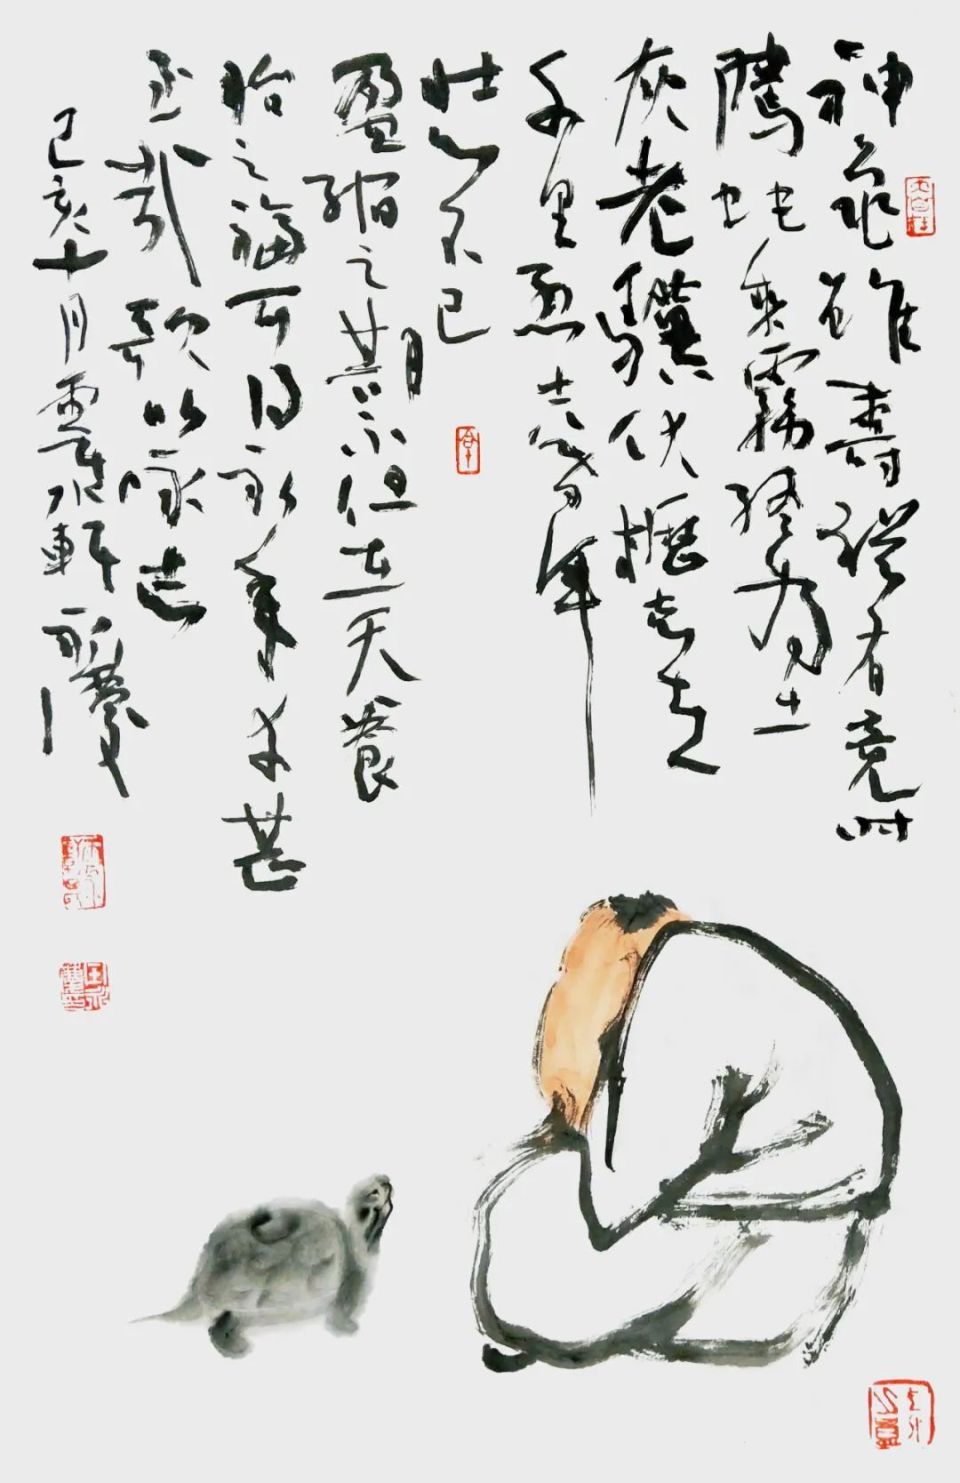 神龜雖壽猶有竟时
騰蛇乘霧終为土
灰老驥伏櫪志在
千里烈士暮年
壯心不已
盈縮之期不但在天養
怡之福可得永年幸甚
至哉歌以詠志
己亥十月